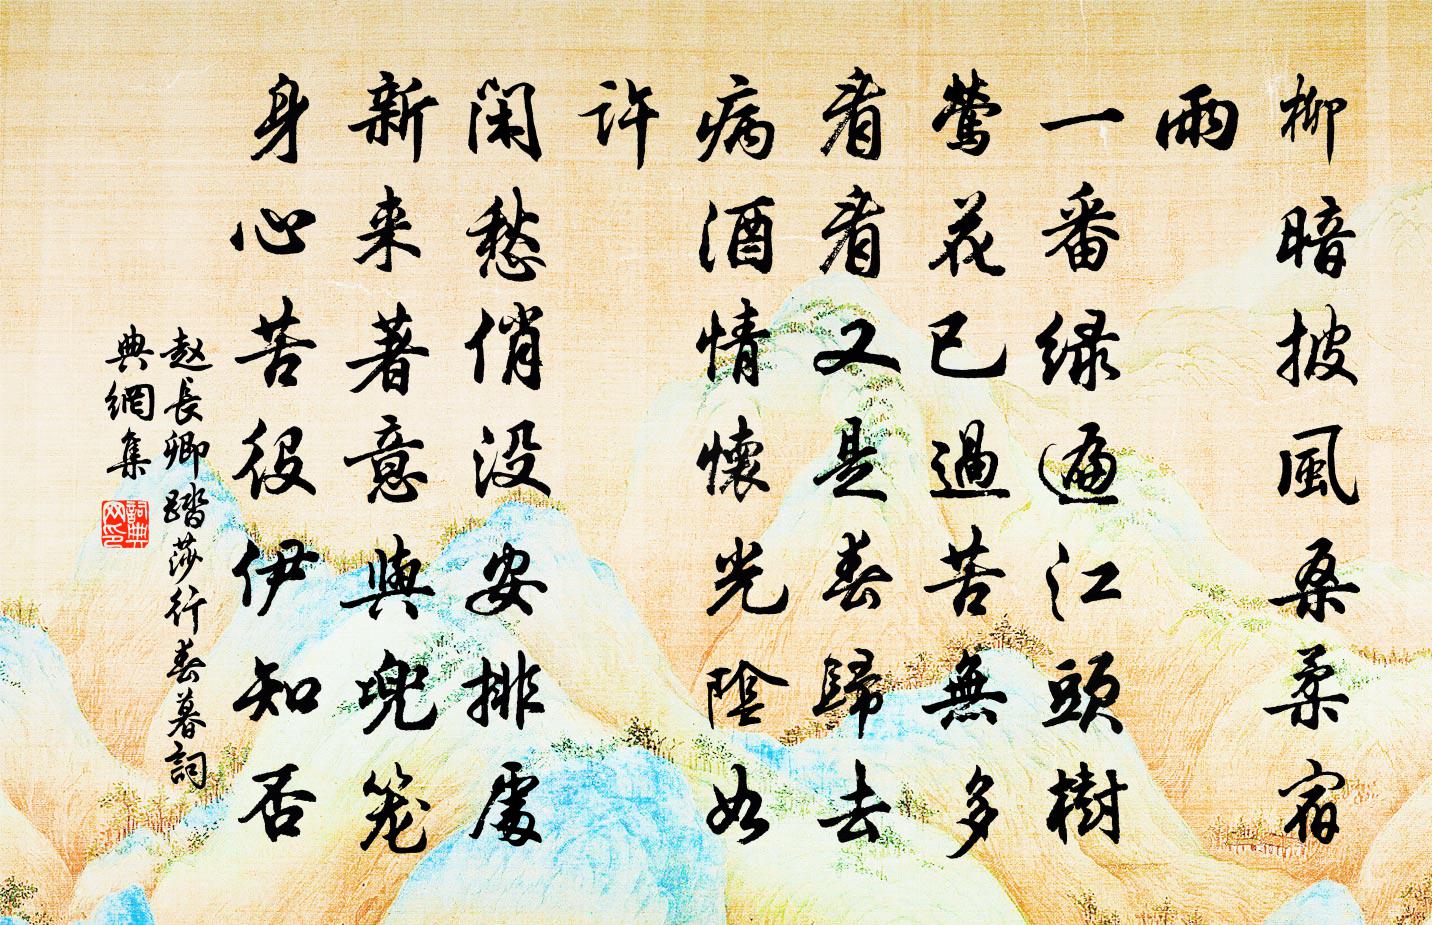 柳暗披風桑柔宿
雨
一番绿遍江頭樹
鶯花已過苦無多
看看又是春歸去
病酒情懷光陰如
許
閑愁俏没安排處
新来著意與兜笼
身心苦役伊知否
赵長卿踏莎行春暮詞
典網集
詞典網印